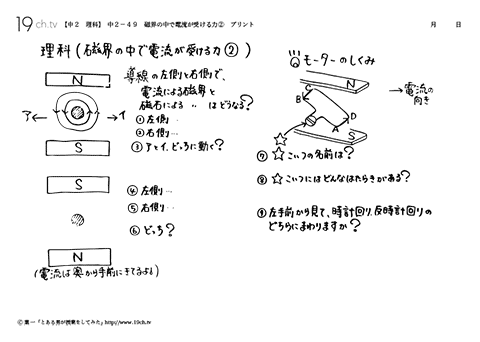 19ch.tv 【中2 理科】 中2-49 磁界の中で電流が受ける力② プリント 月 日
理科(磁界の中で電流が受ける力②)
N
ア イ
S
導線の左側と右側で、
電流による磁界と
磁石による 〃 はどうなる?
① 左側…
② 右側…
③ アとイ、どっちに動く?
S
N
④ 左側…
⑤ 右側…
⑥ どっち?
(電流は奥から手前にきてるよ!)
モーターのしくみ
N
C
B
D
A
S
→電流の
向き
⑦ ☆こいつの名前は?
⑧ ☆こいつにはどんなはたらきがある?
⑨ 左手前から見て、時計回り、反時計回りの
どちらにまわりますか?
© 葉一「とある男が授業をしてみた」http://www.19ch.tv